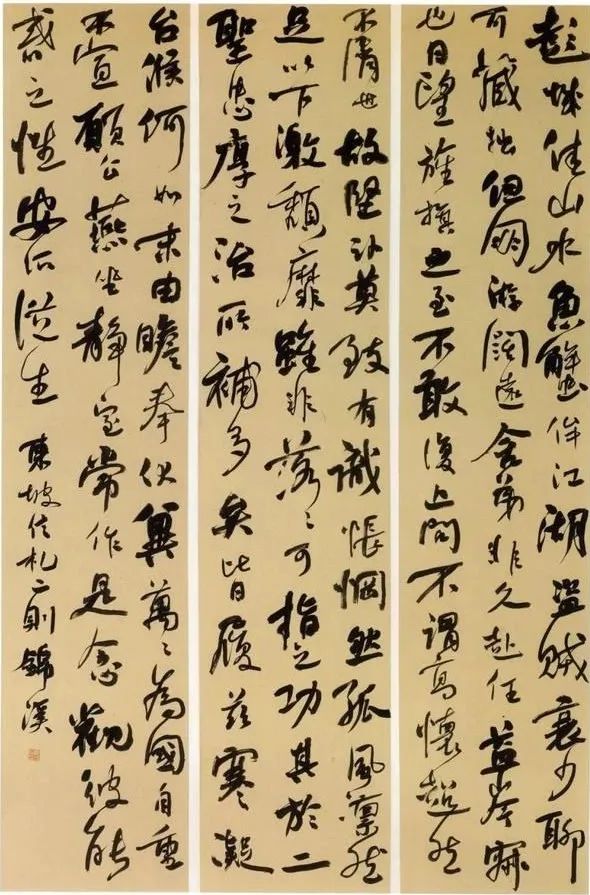 彭城佳山水魚蟹侔江湖盗賊衰少聊
可藏拙但朋游闊遠舍弟非久赴任益岑寂
也日望旌旗之至不敢復上問不謂高懷超然
不屑世故堅卧莫致有識悵惘然孤風凛然
足以下激頹靡雖非落〻可指之功其於二
聖忠厚之治所補多矣比日履兹寒凝
台候何如末由瞻奉伏冀萬〻為國自重
不宣願公燕坐静室常作是念觀彼能
惑之性安所從生 東坡信札二則錦溪